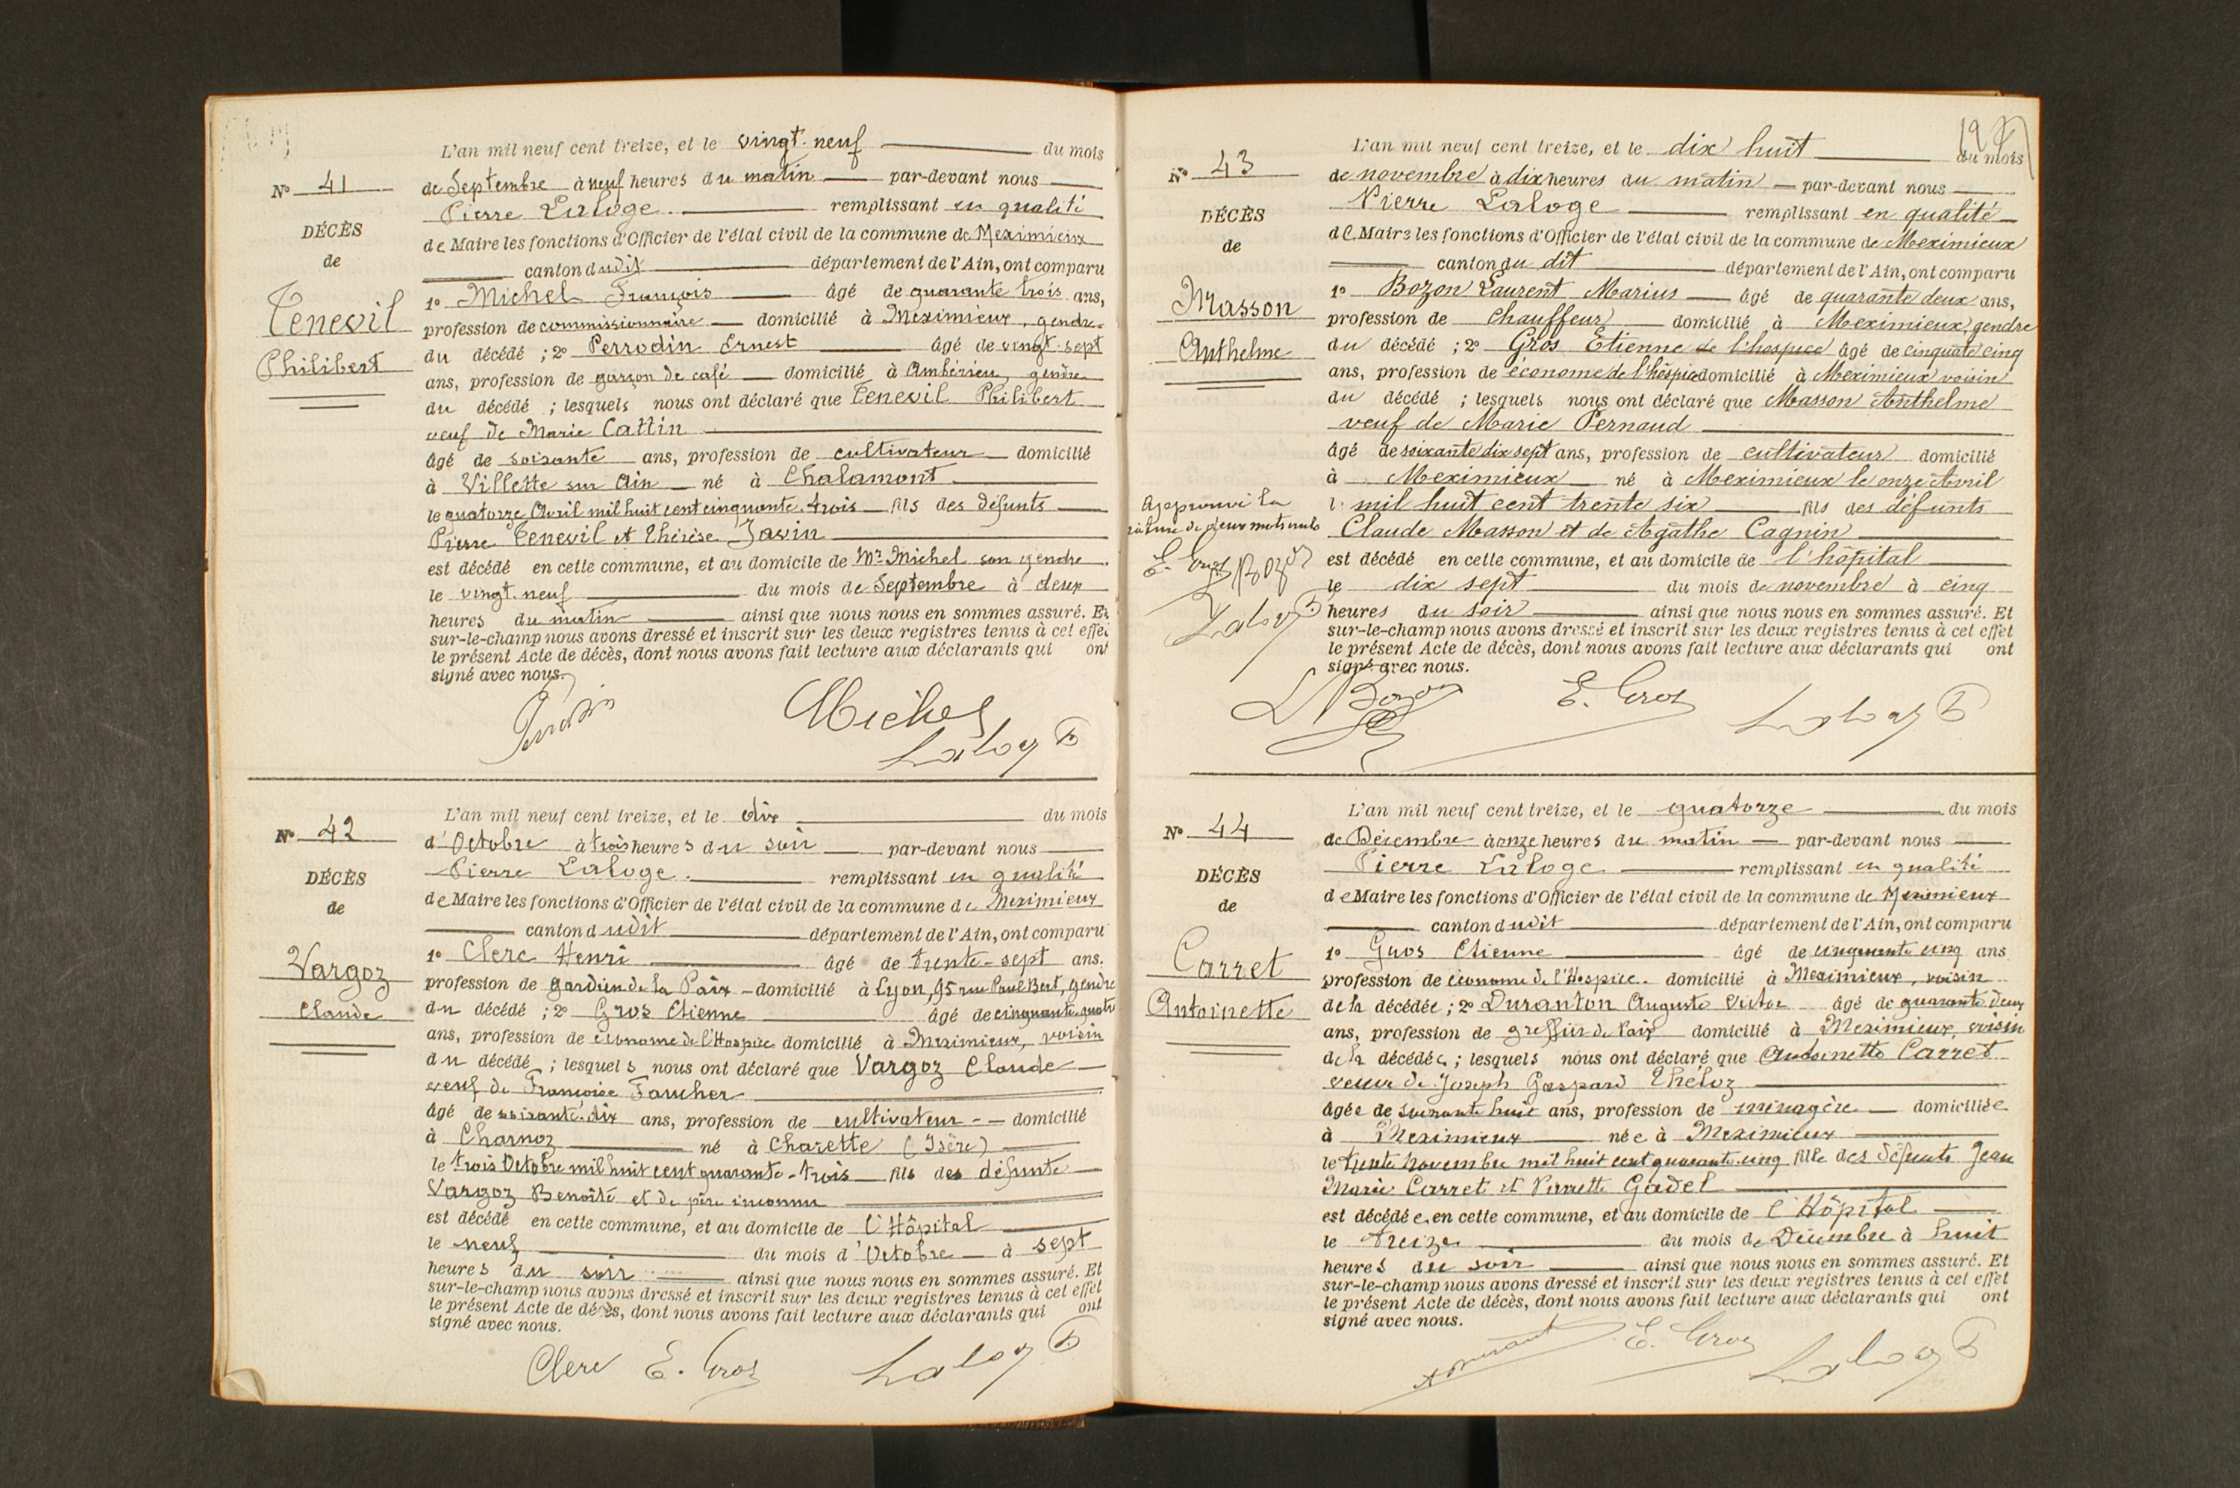 L'an mil neuf cent treize, et le vingt-neuf du mois
N° 41
de Septembre à neuf heures du matin par-devant nous
Pierre Laloge remplissant en qualité
DÉCÈS
de Maire les fonctions d'Officier de l'état civil de la commune de Meximieux
de
canton dudit département de l'Ain, ont comparu
Tenevil
1° Michel François âgé de quarante trois ans,
profession de commissionnaire domicilié à Meximieux, gendre
Philibert
du décédé ; 2° Perrodin Ernest âgé de vingt-sept
ans, profession de garçon de café domicilié à Ambérieu, gendre
du décédé ; lesquels nous ont déclaré que Tenevil Philibert
veuf de Marie Cattin
âgé de soixante ans, profession de cultivateur domicilié
à Villette sur Ain né à Chalamont
le quatorze Avril mil huit cent cinquante-trois fils des défunts
Pierre Tenevil et Thérèse Javin
est décédé en cette commune, et au domicile de Mr Michel son gendre
le vingt-neuf du mois de Septembre à deux
heures du matin ainsi que nous nous en sommes assuré. Et
sur-le-champ nous avons dressé et inscrit sur les deux registres tenus à cet effet
le présent Acte de décès, dont nous avons fait lecture aux déclarants qui ont
signé avec nous.
Michel
Laloge P
L'an mil neuf cent treize, et le dix du mois
N° 42
d'Octobre à trois heures du soir par-devant nous
Pierre Laloge. remplissant en qualité
DÉCÈS
de Maire les fonctions d'Officier de l'état civil de la commune de Meximieux
de
canton dudit département de l'Ain, ont comparu
Vargoz
1° Clerc Henri âgé de trente-sept ans.
profession de gardien de la Paix domicilié à Lyon, 95 rue Paul Bert, gendre
Claude
du décédé ; 2° Gros Etienne âgé de cinquante quatre
ans, profession de économe de l'Hospice domicilié à Meximieux, voisin
du décédé ; lesquels nous ont déclaré que Vargoz Claude
veuf de Françoise Faucher
âgé de soixante-dix ans, profession de cultivateur domicilié
à Charnoz né à Charette (Isère)
le trois Octobre mil huit cent quarante-trois fils des défunte
Vargoz Benoîte et de père inconnu
est décédé en cette commune, et au domicile de l'Hôpital
le neuf du mois d'Octobre à sept
heures du soir ainsi que nous nous en sommes assuré. Et
sur-le-champ nous avons dressé et inscrit sur les deux registres tenus à cet effet
le présent Acte de décès, dont nous avons fait lecture aux déclarants qui ont
signé avec nous.
Clerc E. Gros Laloge P
L'an mil neuf cent treize, et le dix huit du mois
N° 43
de novembre à dix heures du matin par-devant nous
Pierre Laloge remplissant en qualité
DÉCÈS
de Maire les fonctions d'Officier de l'état civil de la commune de Meximieux
de
canton du dit département de l'Ain, ont comparu
Masson
1° Bozon Laurent Marius âgé de quarante deux ans,
profession de chauffeur domicilié à Meximieux, gendre
Anthelme
du décédé ; 2° Gros Etienne de l'hospice âgé de cinquante cinq
ans, profession de économe de l'hospice domicilié à Meximieux voisin
du décédé ; lesquels nous ont déclaré que Masson Anthelme
veuf de Marie Pernaud
âgé de soixante dix sept ans, profession de cultivateur domicilié
à Meximieux né à Meximieux le onze Avril
l mil huit cent trente six fils des défunts
Claude Masson et de Agathe Cagnin
est décédé en cette commune, et au domicile de l'hôpital
le dix sept du mois de novembre à cinq
heures du soir ainsi que nous nous en sommes assuré. Et
sur-le-champ nous avons dressé et inscrit sur les deux registres tenus à cet effet
le présent Acte de décès, dont nous avons fait lecture aux déclarants qui ont
signé avec nous.
Approuvé la
rature de deux mots nuls
E. Gros Bozon
Laloge P
L Bozon E. Gros Laloge P
L'an mil neuf cent treize, et le quatorze du mois
N° 44
de Décembre à onze heures du matin par-devant nous
Pierre Laloge remplissant en qualité
DÉCÈS
de Maire les fonctions d'Officier de l'état civil de la commune de Meximieux
de
canton dudit département de l'Ain, ont comparu
Carret
1° Gros Etienne âgé de cinquante cinq ans
profession de économe de l'Hospice. domicilié à Meximieux, voisin
Antoinette
de la décédée ; 2° Duranton Auguste Victor âgé de quarante deux
ans, profession de greffier de Paix domicilié à Meximieux, voisin
de la décédée ; lesquels nous ont déclaré que Antoinette Carret
veuve de Joseph Gaspard Théloz
âgée de soixante huit ans, profession de ménagère domiciliée
à Meximieux née à Meximieux
le trente novembre mil huit cent quarante-cinq fille des défunts Jean
Marie Carret et Pierrette Gadel
est décédée en cette commune, et au domicile de l'Hôpital
le treize du mois de Décembre à huit
heures du soir ainsi que nous nous en sommes assuré. Et
sur-le-champ nous avons dressé et inscrit sur les deux registres tenus à cet effet
le présent Acte de décès, dont nous avons fait lecture aux déclarants qui ont
signé avec nous.
E. Gros Laloge P